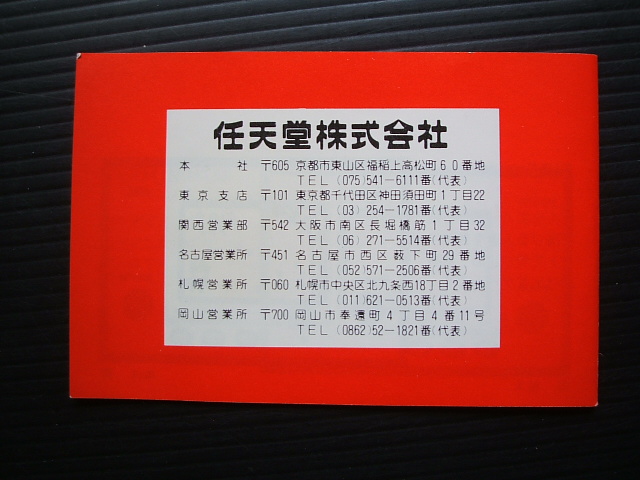 任天堂株式会社
本社 〒605 京都市東山区福稲上高松町60番地
TEL (075)541-6111番(代表)
東京支店 〒101 東京都千代田区神田須田町1丁目22
TEL (03) 254-1781番(代表)
関西営業部 〒542 大阪市南区長堀橋筋1丁目32
TEL (06) 271-5514番(代表)
名古屋営業所 〒451 名古屋市西区薮下町29番地
TEL (052)571-2506番(代表)
札幌営業所 〒060 札幌市中央区北九条西18丁目2番地
TEL (011)621-0513番(代表)
岡山営業所 〒700 岡山市奉還町4丁目4番11号
TEL (0862)52-1821番(代表)